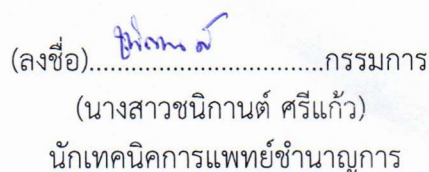 (ลงชื่อ)................................กรรมการ
(นางสาวชนิกานต์ ศรีแก้ว)
นักเทคนิคการแพทย์ชำนาญการ